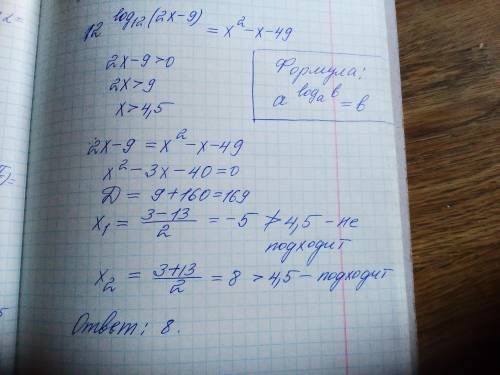 12^log₁₂(2x-9) = x²-x-49
2x-9>0
2x>9
x>4,5
Формула:
a^logₐb = b
2x-9=x²-x-49
x²-3x-40=0
D = 9+160=169
x₁ = (3-13)/2 = -5 ≯ 4,5 - не
подходит
x₂ = (3+13)/2 = 8 > 4,5 - подходит
Ответ: 8.